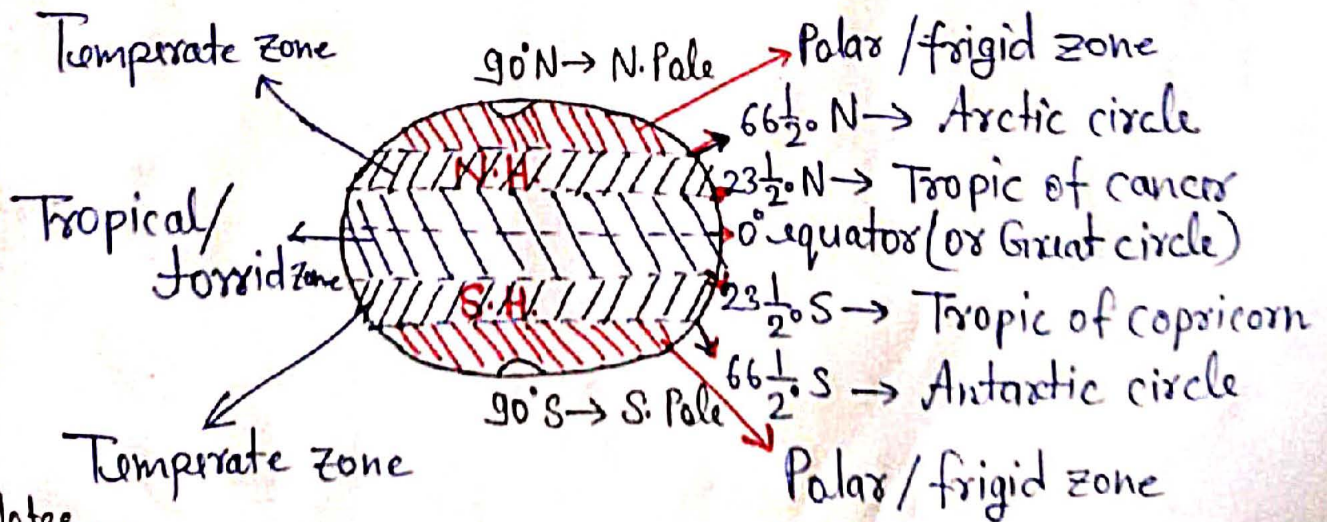 Temperate zone
90°N→ N. Pole
Polar/frigid zone
66½° N→ Arctic circle
N.H.
23½° N→ Tropic of cancer
Tropical/
torrid zone
0° equator (or Great circle)
S.H.
23½° S→ Tropic of copricorn
66½° S → Antartic circle
90°S→ S. Pole
Temperate zone
Polar/frigid zone